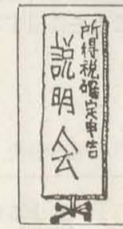 所得税確定申告
説明会